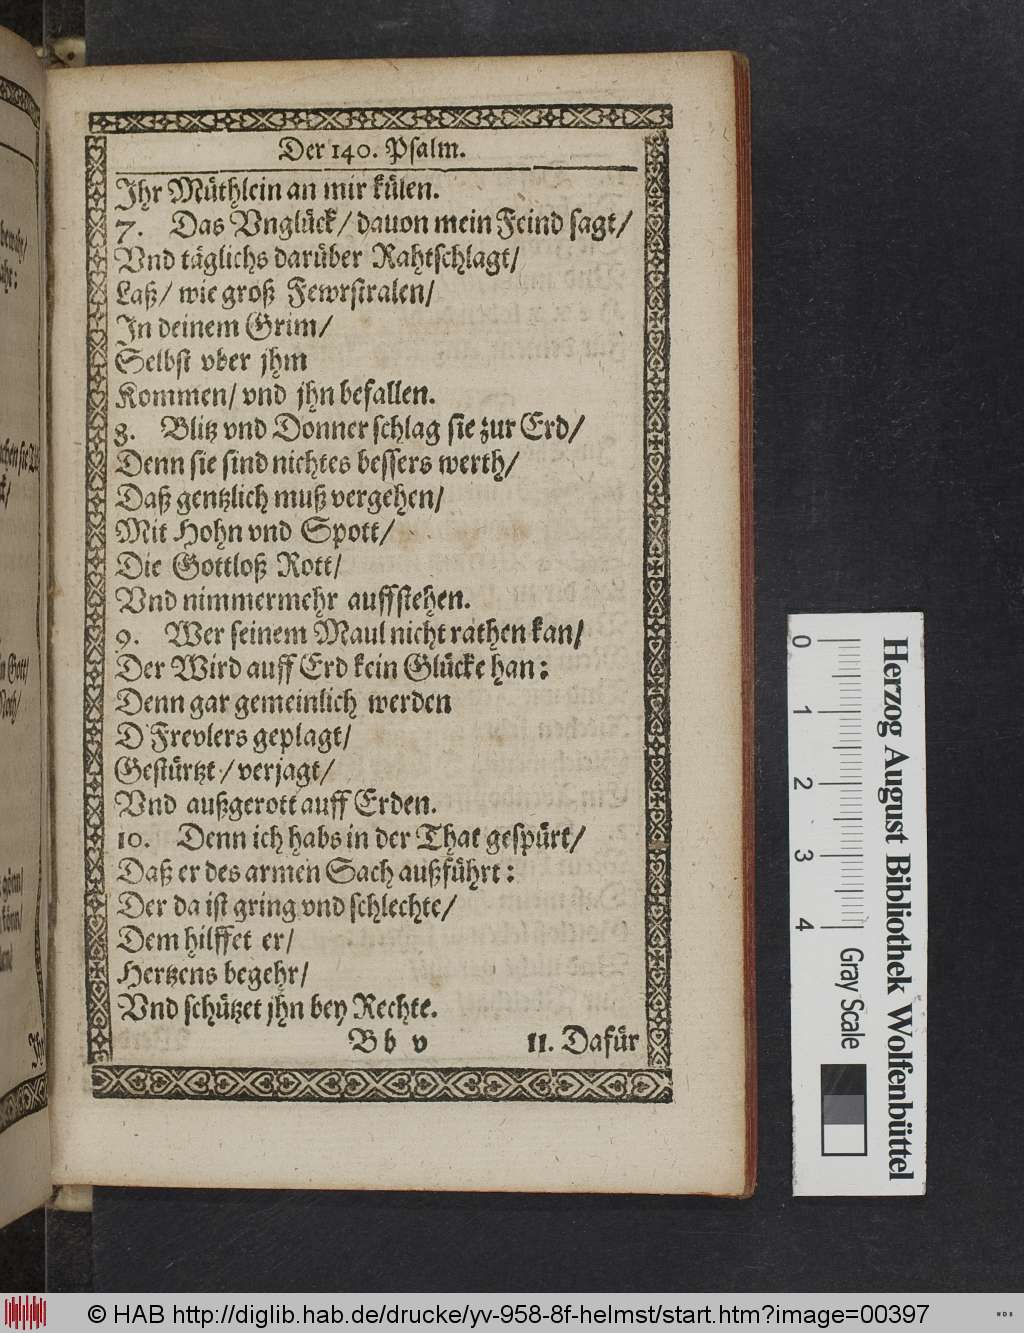 Der 140. Psalm.
Jhr Müthlein an mir külen.
7. Das Vnglück/ dauon mein Feind sagt/
Vnd täglichs darüber Rahtschlagt/
Laß/ wie groß Fewrstralen/
Jn deinem Grim/
Selbst vber jhm
Kommen/ vnd jhn befallen.
8. Blitz vnd Donner schlag sie zur Erd/
Denn sie sind nichtes bessers werth/
Daß gentzlich muß vergehen/
Mit Hohn vnd Spott/
Die Gottloß Rott/
Vnd nimmermehr auffstehen.
9. Wer seinem Maul nicht rathen kan/
Der Wird auff Erd kein Glücke han:
Denn gar gemeinlich werden
D'Frevlers geplagt/
Gestürtzt/ verjagt/
Vnd außgerott auff Erden.
10. Denn ich habs in der That gespürt/
Daß er des armen Sach außführt:
Der da ist gring vnd schlechte/
Dem hilffet er/
Hertzens begehr/
Vnd schützet jhn bey Rechte.
B b v
11. Dafür
Herzog August Bibliothek Wolfenbüttel
0 1 2 3 4
Gray Scale
© HAB http://diglib.hab.de/drucke/yv-958-8f-helmst/start.htm?image=00397